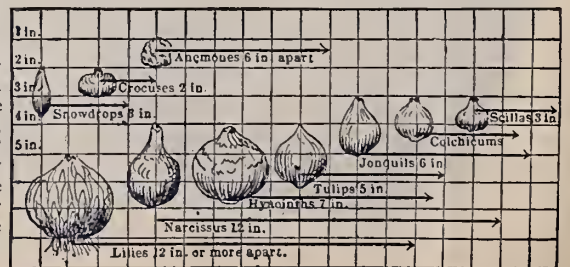 1 in.
Anemones 6 in. apart
2 in.
3 in.
Crocuses 2 in.
4 in.
Snowdrops 3 in.
Scillas 3 in
Colchicums
5 in.
Jonquils 6 in
Tulips 5 in
Hyacinths 7 in.
Narcissus 12 in.
Lilies 12 in. or more apart.